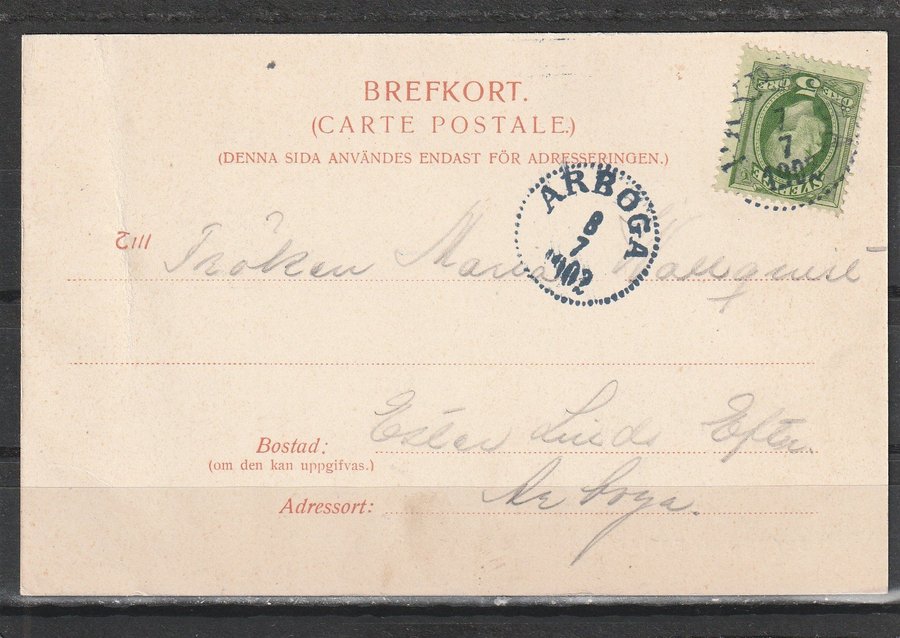 BREFKORT.
(CARTE POSTALE.)
(DENNA SIDA ANVÄNDES ENDAST FÖR ADRESSERINGEN.)
7
7
1902
ARBOGA
8
7
1902
Till Fröken Maria Wallquist
Bostad: Ester Linds Eftr.
(om den kan uppgifvas.)
Adressort: Arboga.